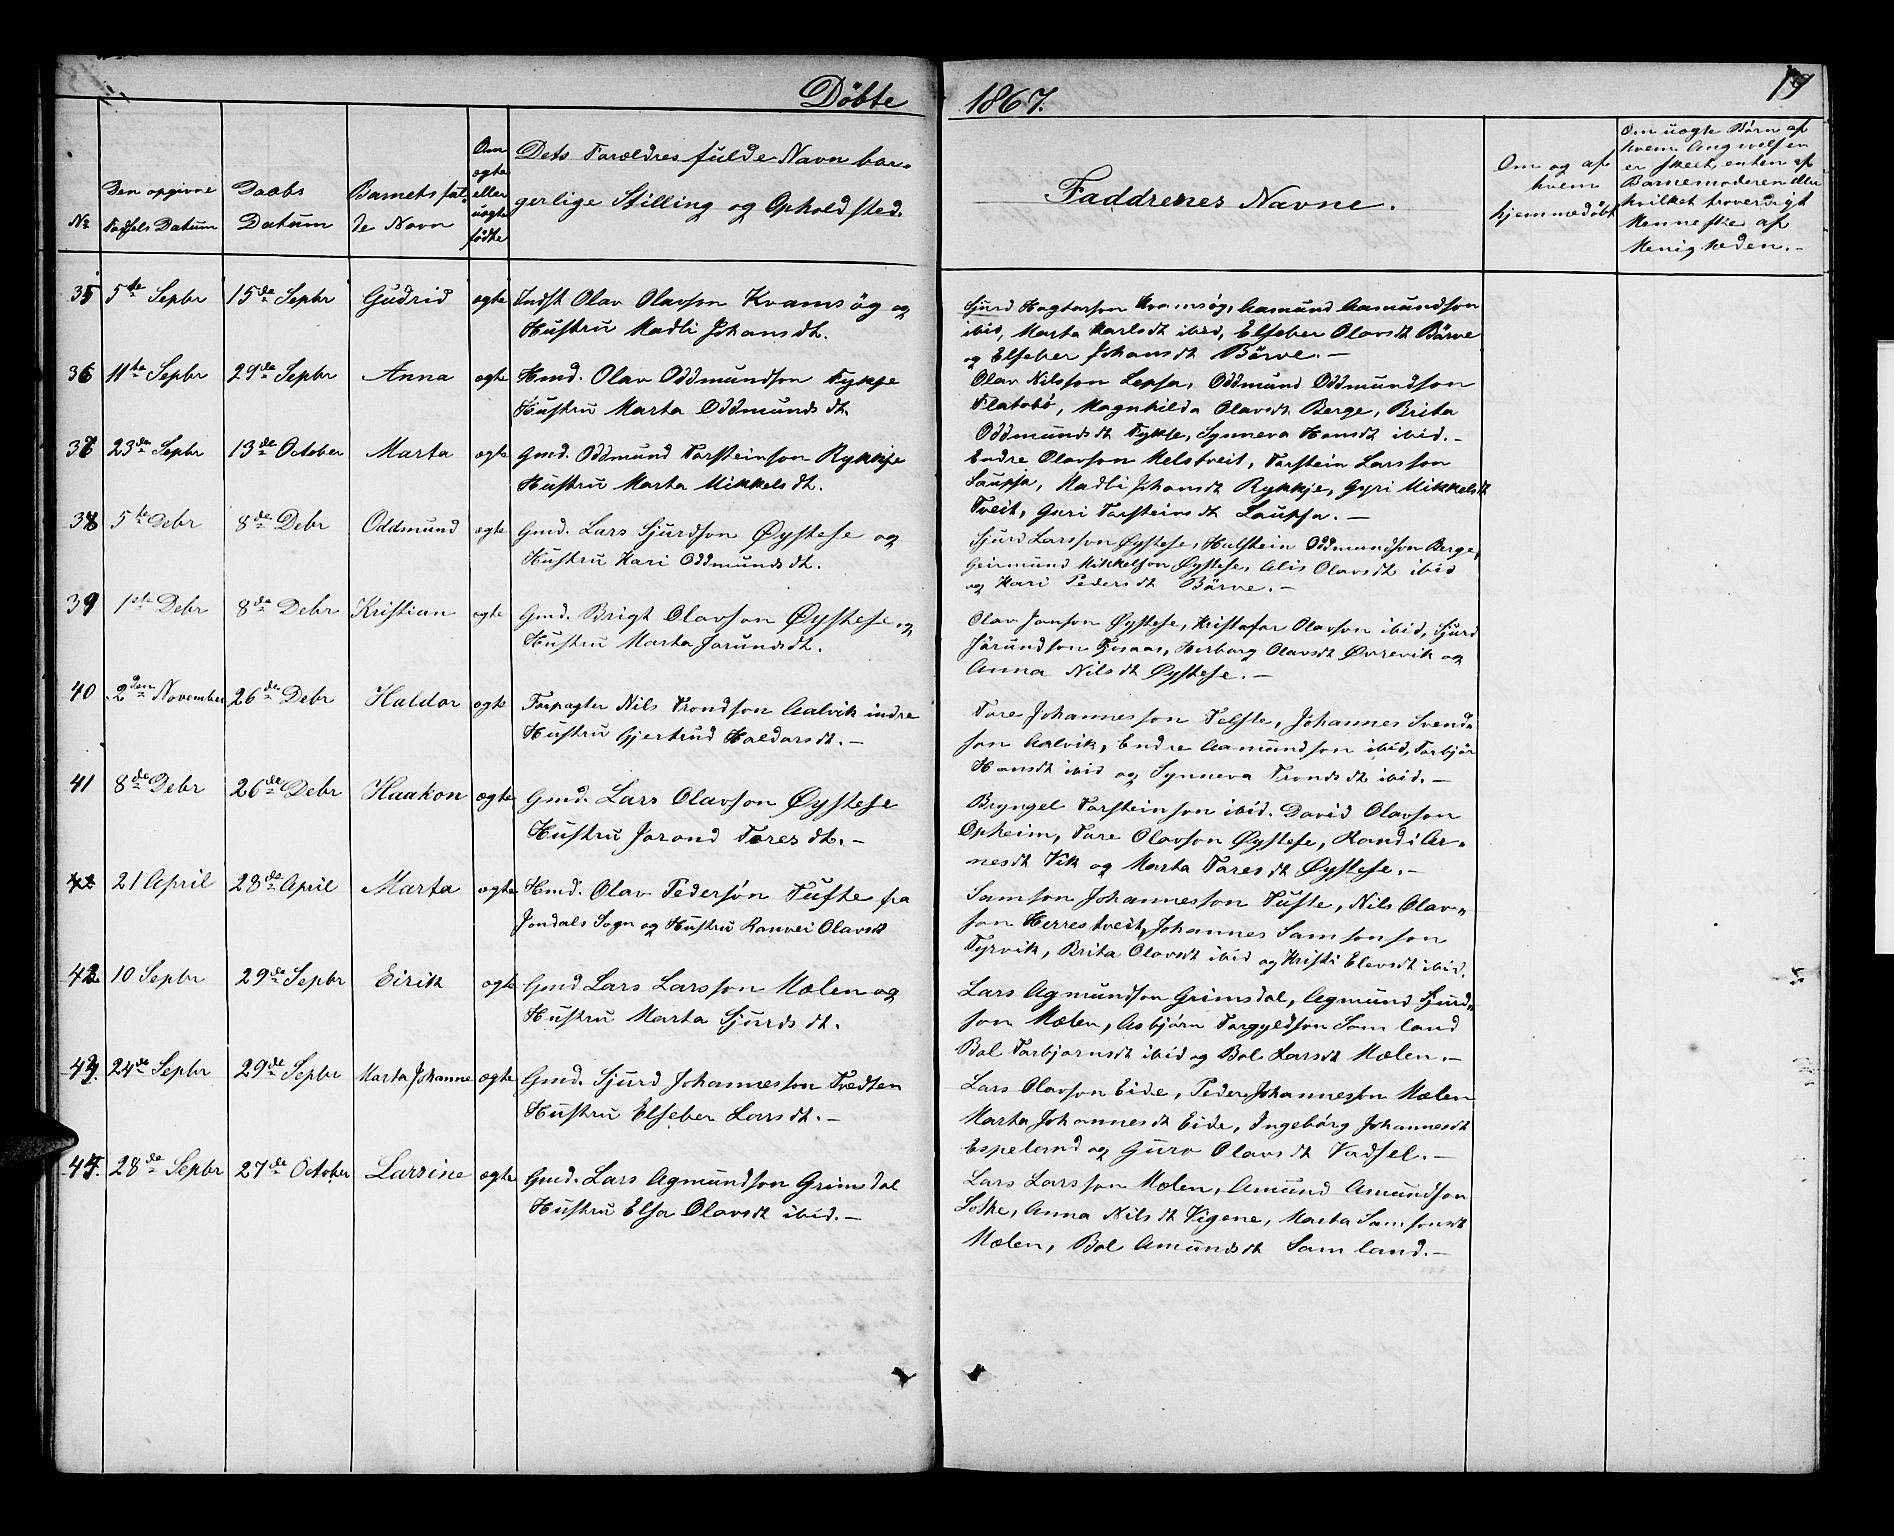 Döbte
1867.
19
No
Den opgivne
Födsels Datum
Daabs
Datum
Barnets ful-
de Navn
Om
ægte
eller
uægte
födte
Dets Forældres fulde Navn bor-
gerlige Stilling og Opholdsted.
Faddrenes Navne.
Om og af
hvem
hjemmedöbt
Om uægte Börn af
hvem Angivelsen
er skeet, enten af
Barnemoderen eller
hvilket troverdigt
Menneske af
Menigheden.-
35 5te Sepbr 15de Sepbr Gudrid ægte Indst Olav Olavson Kvamsög og
Hustru Madli Johansdt.
Sjurd Hagtorson Kvamsög, Aamund Aamundson
ibid, Marta Karlsdt ibid, Elseber Olavsdt Börve
og Elseber Johansdt Börve.-
36 11te Sepbr 29de Sepbr Anna ægte Hmd. Olav Oddmundson Fykse
Hustru Marta Oddmundsdt.
Olav Nilsson Lepsa, Oddmund Oddmundson
Flatebö, Magnhilda Olavsdt Berge, Brita
Oddmundsdt Fykse, Synneva Hansdt ibid.-
37 23de Sepbr 13de October Marta ægte Gmd. Oddmund Torsteinson Rykkje
Hustru Marta Mikkelsdt.
Endre Olavson Melstveit, Torstein Larsson
Laupsa, Madli Johansdt Rykkje, Gyri Mikkelsdt
Tveit, Guri Torsteinsdt Laupsa.-
38 5te Debr 8de Debr Oddmund ægte Gmd. Lars Sjurdson Øystese og
Hustru Kari Oddmundsdt.
Sjurd Larsson Øystese, Halstein Oddmundson Berge,
Geirmund Mikkelson Øystese, Alis Olavsdt ibid
og Kari Pedersdt Börve.-
39 1ste Debr 8de Debr Kristian ægte Gmd. Brigt Olavson Øystese og
Hustru Marta Jorundsdt.
Olav Janson Øystese, Kristofor Olavson ibid, Sjurd
Jörundson Fosaas, Herborg Olavsdt Øvrevik og
Anna Nilsdt Øystese.-
40 2den November 26de Debr Haldor ægte Forpagter Nils Trondson Aalvik indre
Hustru Gjertrud Haldorsdt.-
Tore Johannesson Telste, Johannes Svend-
son Aalvik, Endre Aamundson ibid, Torbjör
Hansdt ibid og Synneva Trondsdt ibid.-
41 8de Debr 26de Debr Haakon ægte Gmd. Lars Olavson Øystese
Hustru Jorond Toresdt.-
Bryngel Torsteinson ibid. David Olavson
Opheim, Tore Olavson Øystese, Randi Ar-
nesdt Vik og Marta Toresdt Øystese.-
42 21 April 28de April Marta ægte Hmd. Olav Pederson Tufte fra
Jondals Sogn og Hustru Ranvei Olavsdt
Samson Johannesson Tufte, Nils Olav-
son Herrestveit, Johannes Samsonson
Tyrvik, Brita Olavsdt ibid og Kristi Elevsdt ibid.
42 10 Sepbr 29de Sepbr Eirik ægte Gmd Lars Larsson Mælen og
Hustru Marta Sjurdsdt.
Lars Agmundson Grimsdal, Agmund Sjurd-
son Mælen, Asbjörn Torgyldson Samland
Bol Torbjornsdt ibid og Bol Larsdt Mælen.-
43. 24de Sepbr 29de Sepbr Marta Johanne ægte Gmd. Sjurd Johannesson Tvedten
Hustru Elseber Larsdt.-
Lars Olavson Eide, Peder Johannesson Mælen
Marta Johannesdt Eide, Ingebörg Johannesdt
Espeland og Guro Olavsdt Vadsel.-
44. 28de Sepbr 27de October Larsine ægte Gmd. Lars Agmundson Grimsdal
Hustru Elsa Olavsdt ibid.-
Lars Larsson Mælen, Amund Amundson
Lothe, Anna Nilsdt Vigene, Marta Samsonsdt
Mælen, Bol Amundsdt Samland.-